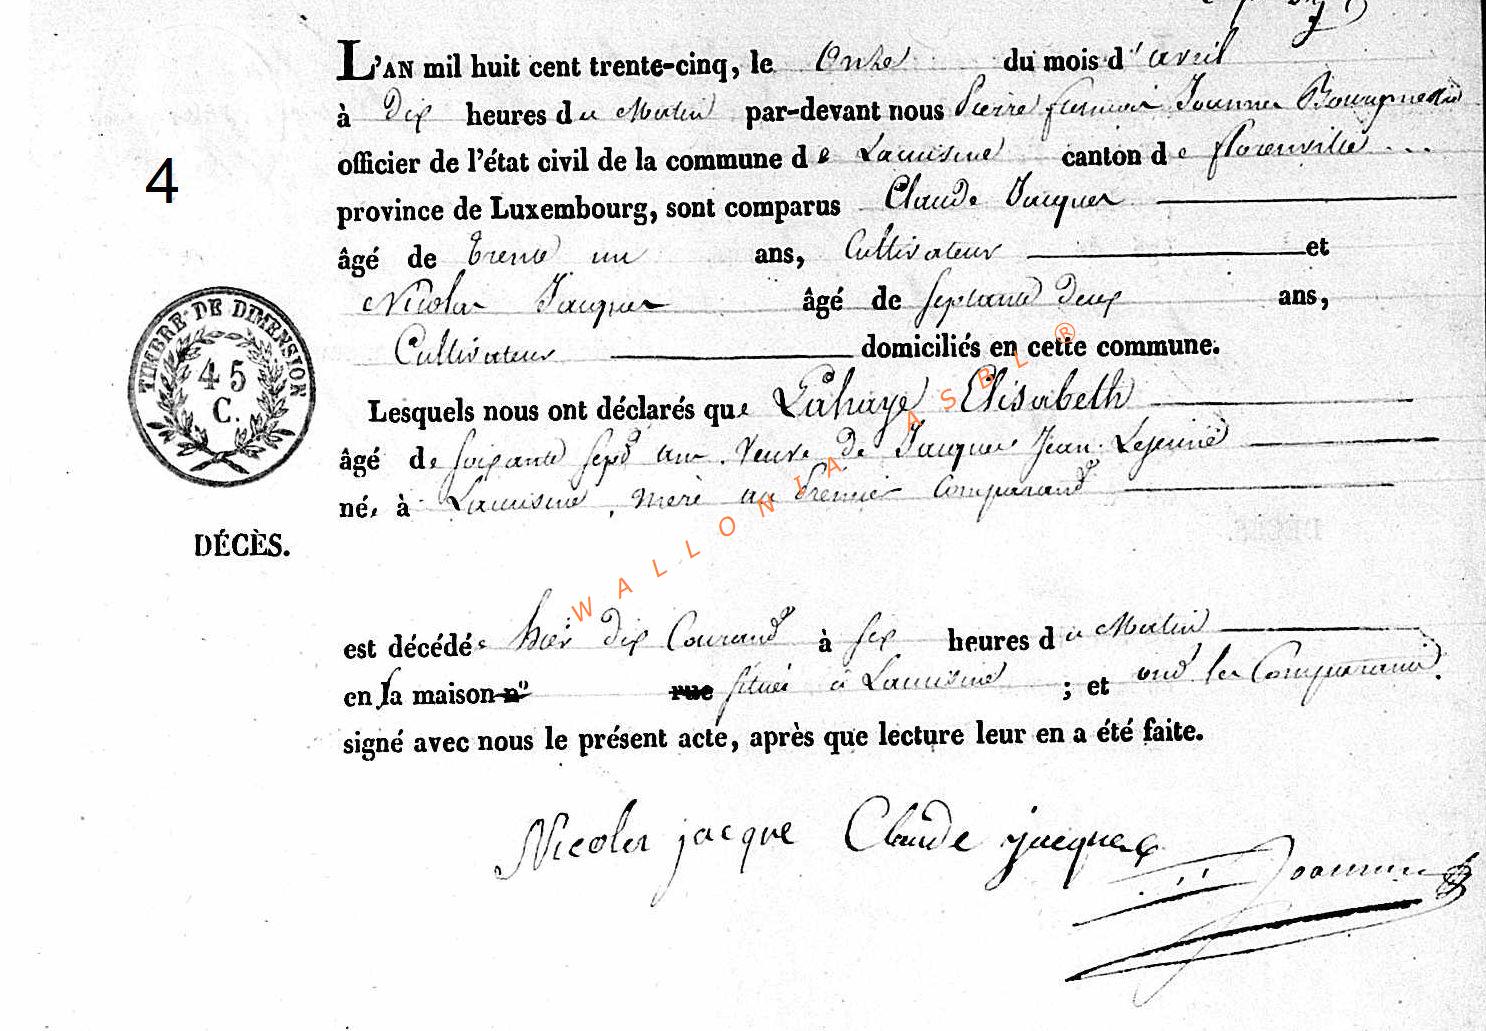 L'AN mil huit cent trente-cinq, le Onze du mois d'avril
à Dix heures du Matin par-devant nous Pierre Joannes Bourgmestre
officier de l'état civil de la commune de Lacuisine canton de florenville ...
province de Luxembourg, sont comparus Claude Jacques
4
âgé de trente un ans, Cultivateur et
Nicolas Jacques âgé de septante deux ans,
Cultivateur domiciliés en cette commune.
TIMBRE DE DIMENSION
45
C.
Lesquels nous ont déclarés que Lahaye Elisabeth
âgé de soixante sept ans. Veuve de Jacques Jean Lejeune
née à Lacuisine, mere au Premier Comparand
DÉCÈS.
est décédée hier dix Courand à six heures du Matin
en la maison n° rue située à Lacuisine ; et ond les Comparans.
signé avec nous le présent acte, après que lecture leur en a été faite.
Nicolas jacque Claude jacques
WALLONIA ASBL ®